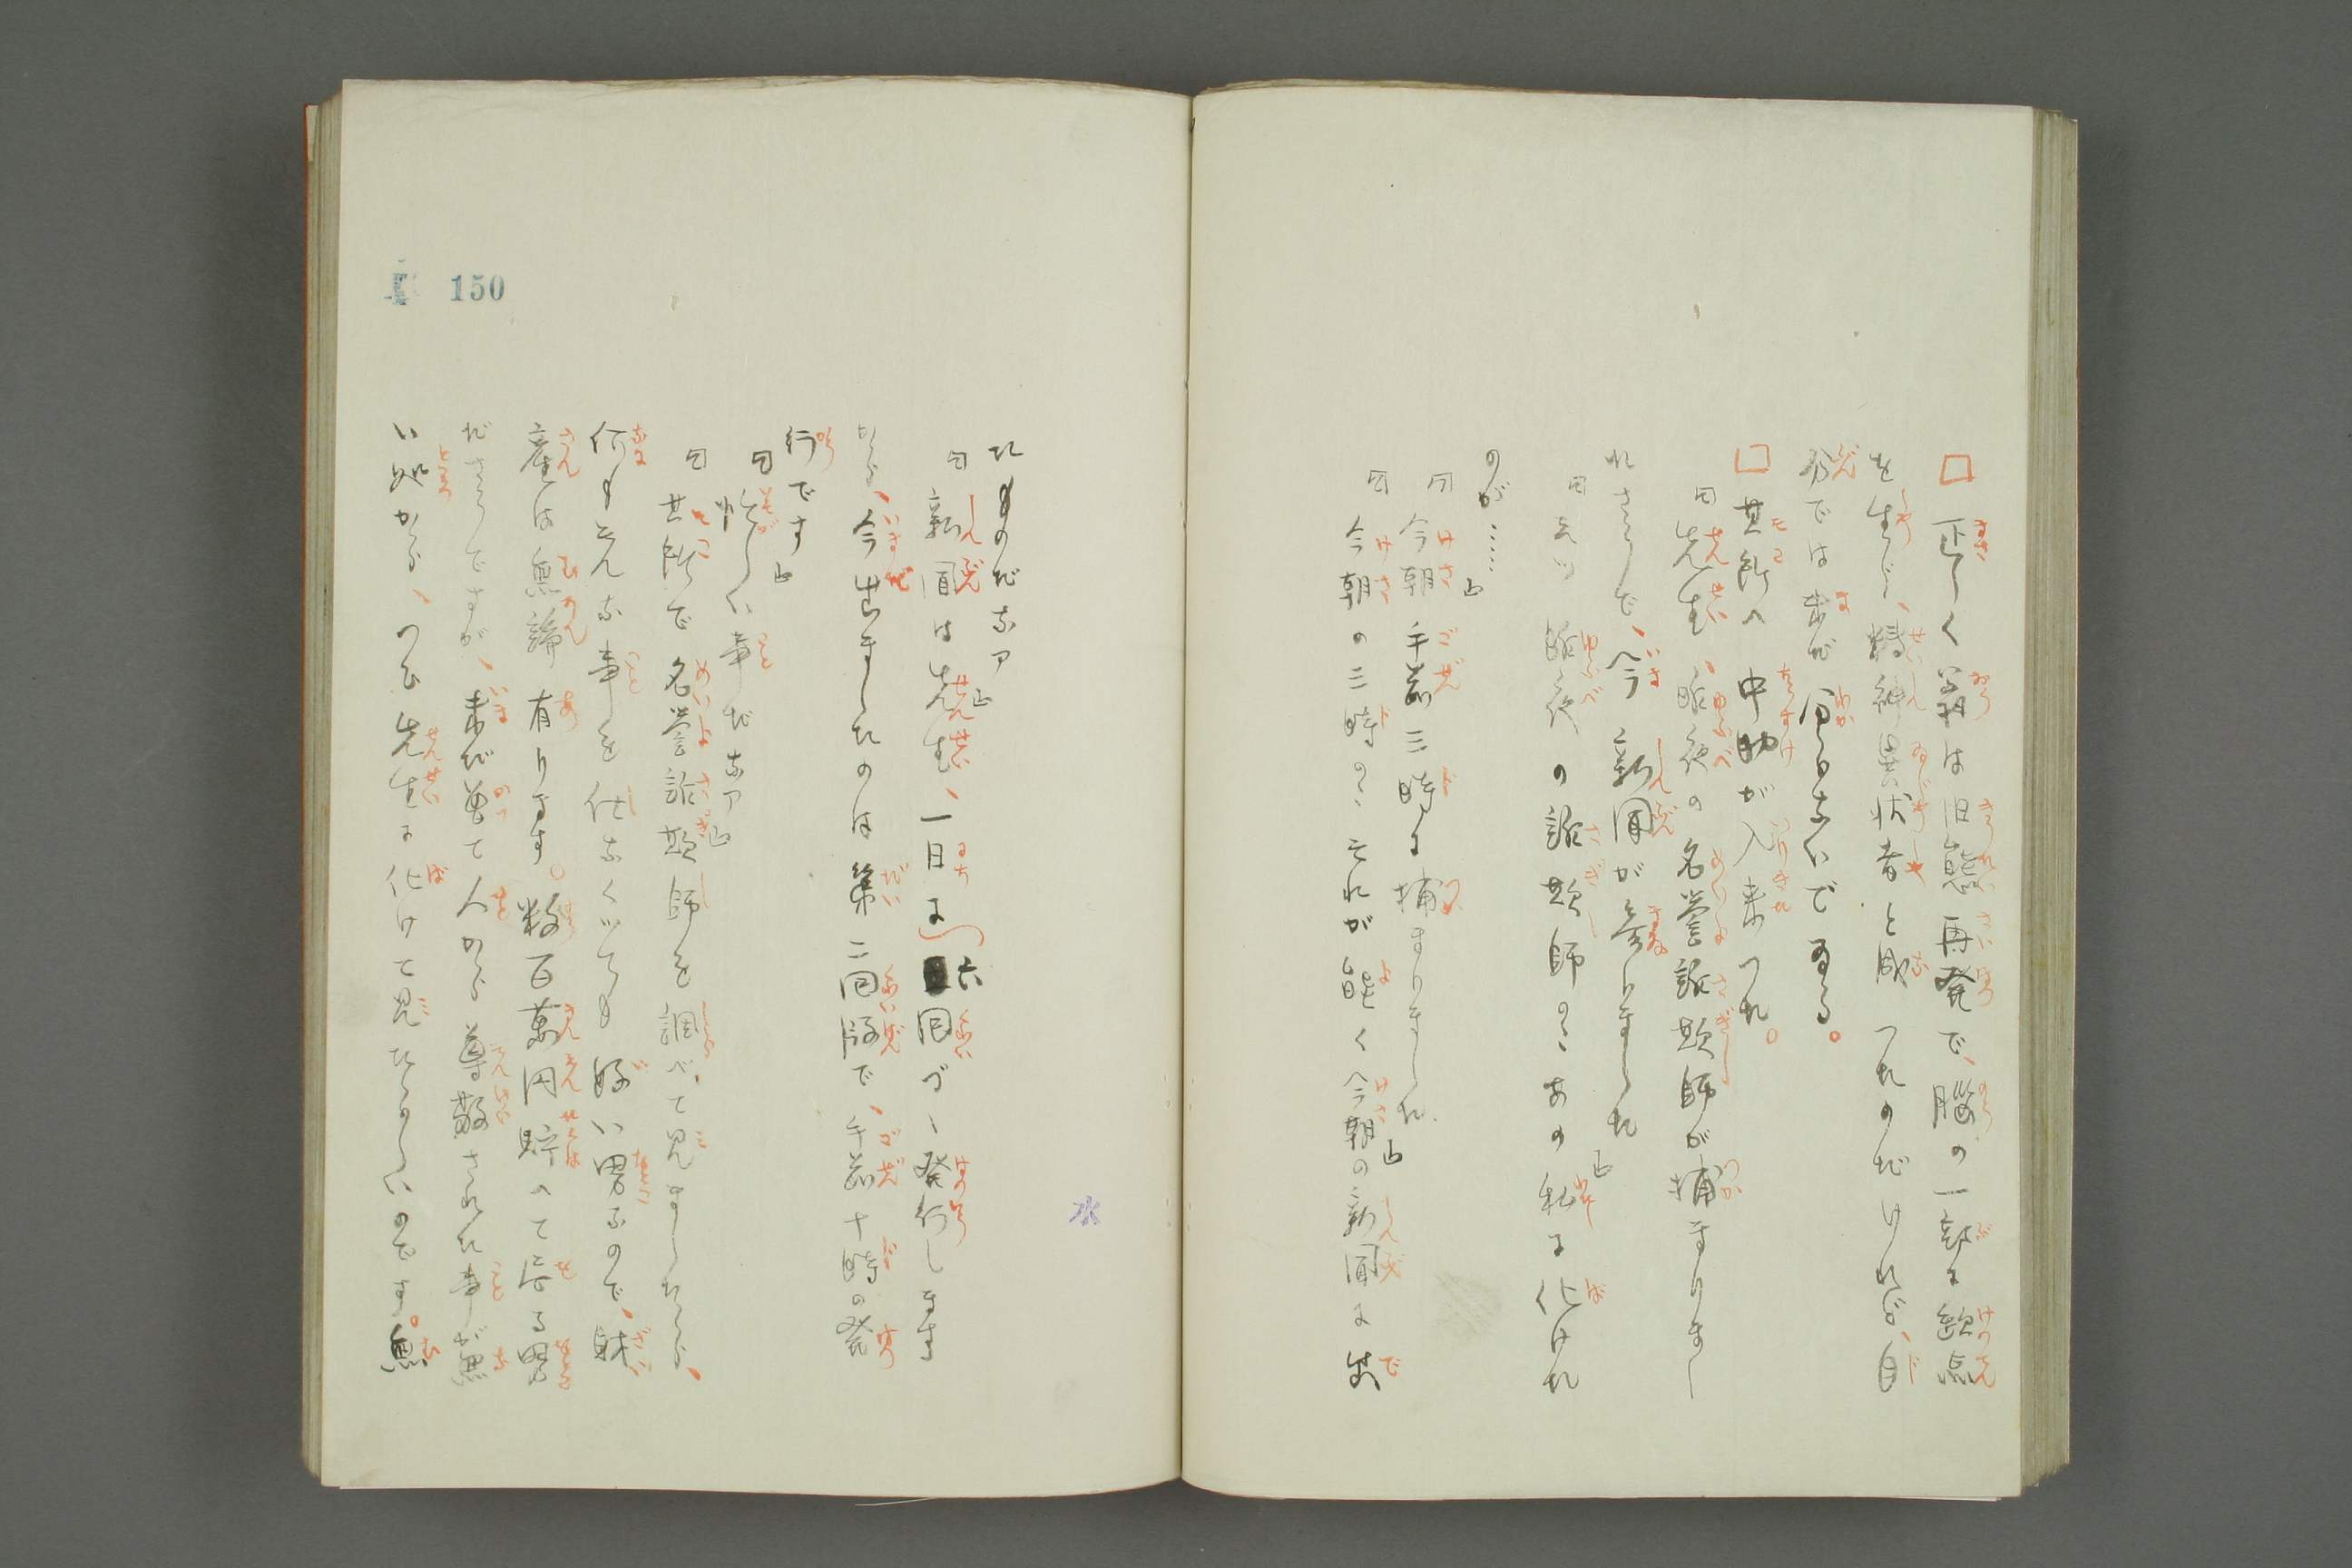 正しく翁は旧態再発で、脳の一部に欠点
を生じ、精神異状者と成つたのだけれど、自
分では未だ分らないでゐる。
其所へ中助が入来つた。
「先生、昨夜の名誉詐欺師が捕まりまし
たさうで、今新聞が参りました」
「えツ昨夜の詐欺師の、あの私に化けた
のが……」
「今朝午前三時に捕まりました」
「今朝の三時の、それが能く今朝の新聞に出
たものだなア」
「新聞は先生、一日に六回づゝ発行します
から、今出ましたのは第二回版で、午前十時の発
行です」
「忙しい事だなア」
「其所で名誉詐欺師を調べて見ましたら、
何もそんな事を仕なくツても好い男なので、財
産は無論有ります。数百萬円貯へて居る男
ださうですが、未だ曽て人から尊敬された事が無
い処から、つひ先生に化けて見たらしいのです。無
150